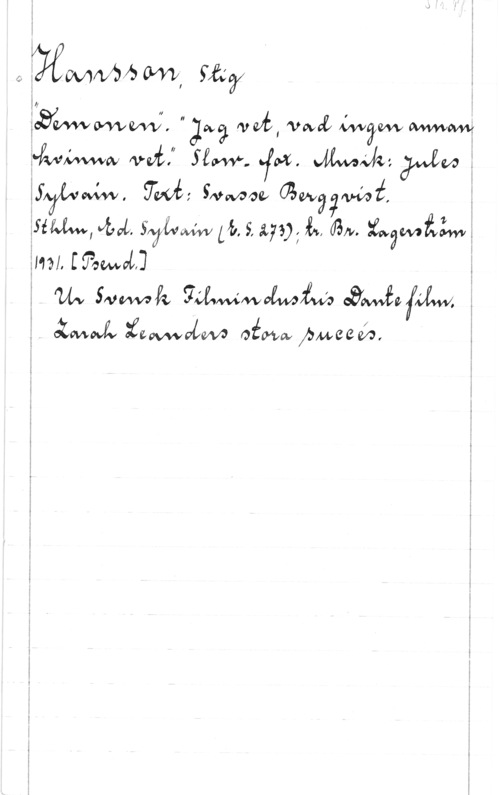 Hansson, Stig
"Demonen". "Jag vet, vad ingen annan
kvinna vet." Slow-fox. Musik: Jules
Sylvain. Text: Svasse Bergqvist.
Sthlm, Ed. Sylvain (E. S. 273); tr. Br. Lagerström
1931. [Pseud.]
Ur Svensk Filmindustris Dantefilm.
Zarah Leanders stora succés.